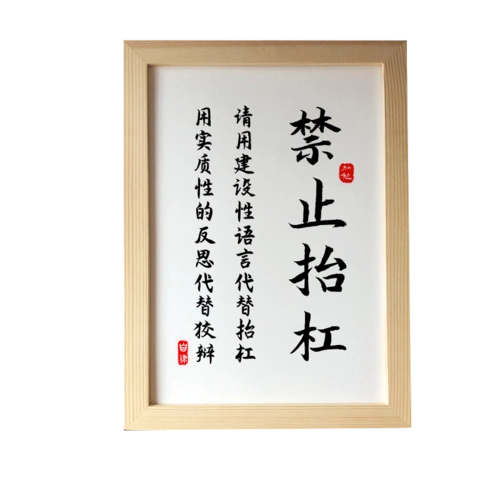 禁止抬杠
请用建设性语言代替抬杠
用实质性的反思代替狡辨
自律